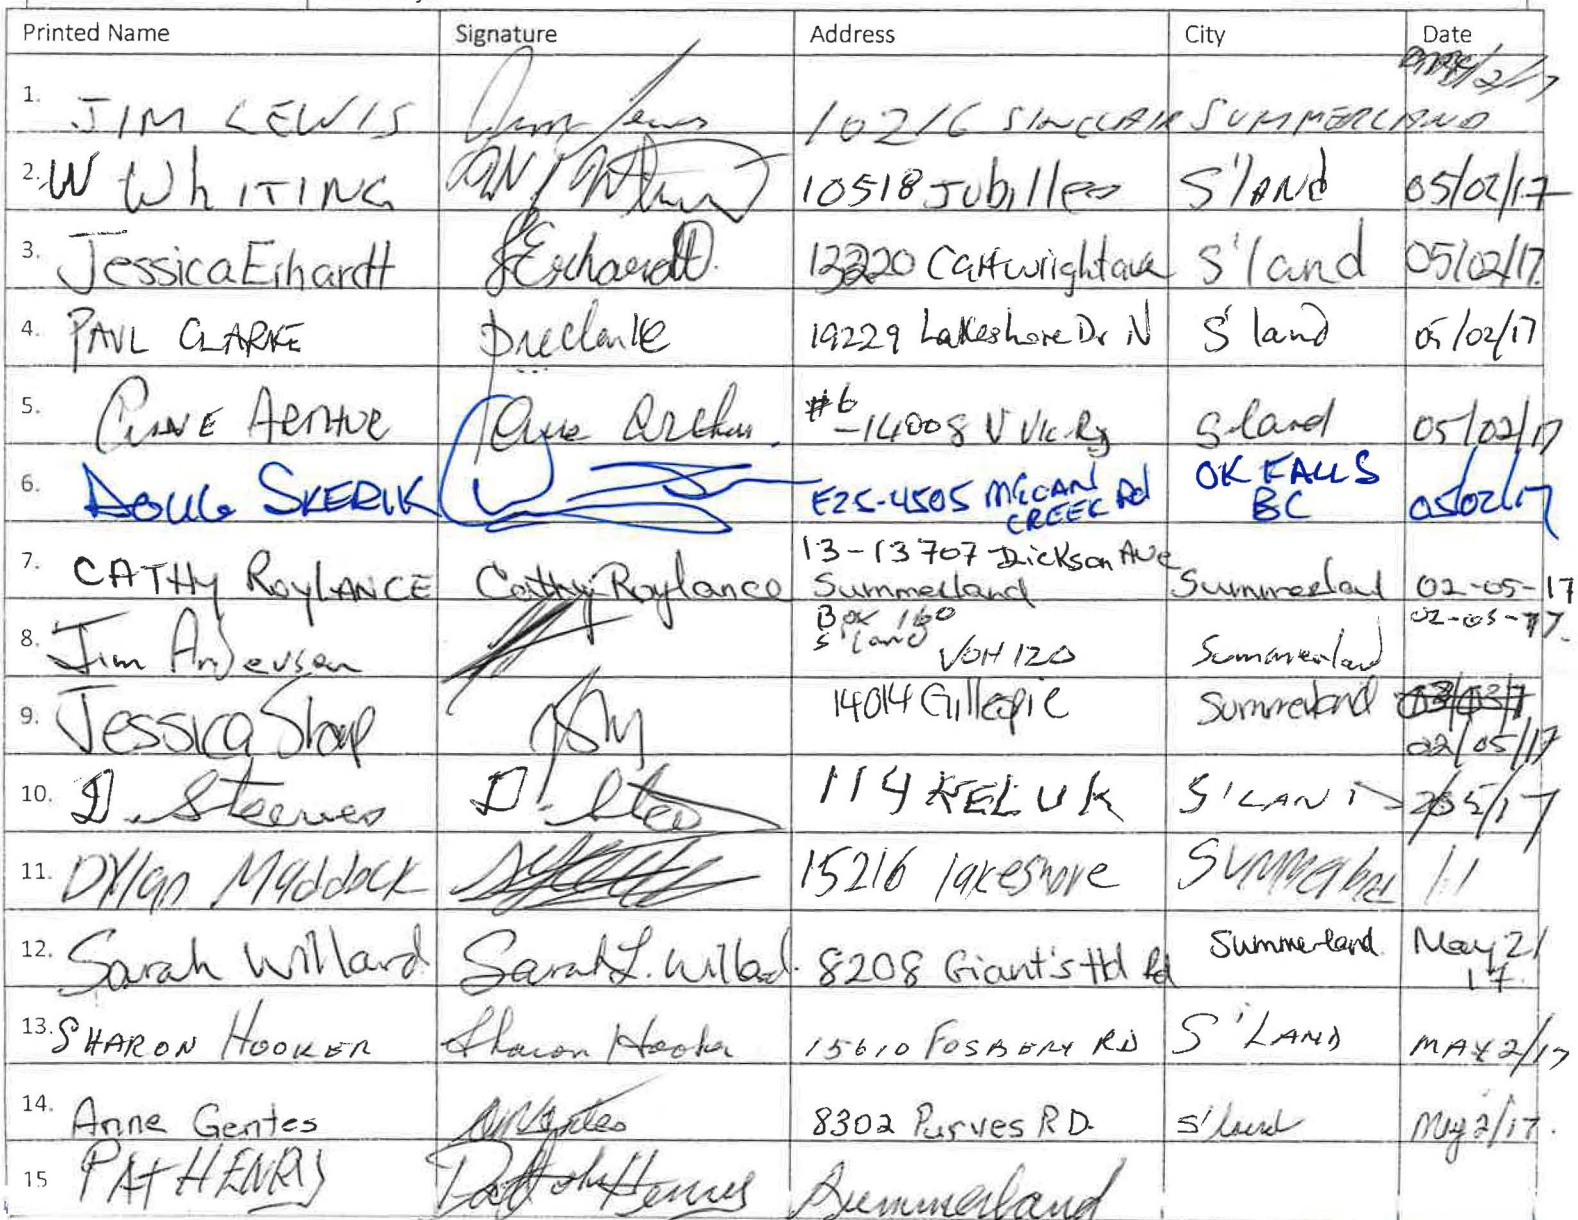 Printed Name Signature Address City Date
1. JIM LEWIS Jim Lewis 10216 SINCLAIR SUMMERLAND /2/17
2. W WhITING 10518 Jubillee S'lANd 05/02/17
3. Jessica Erhardt JErhardt 13220 Cartwright ave S'land 05/02/17
4. PAUL CLARKE 19229 Lakeshore Dr N S'land 05/02/17
5. ARTHUR #6 -14008 V Vic Rd Sland 05/02/17
6. DOUG SKERIK E25-4505 MCLEAN CREEK Rd OK FALLS BC 05/02/17
7. CATHy ROyLANCE Cathy Roylance 13-13707 Dickson Ave Summerland Summerland 02-05-17
8. Jim Andersen Box 160 S'land V0H 1Z0 Summerland 02-05-17.
9. Jessica 14014 Gillespie Summerland 02/05/17
10. D. Steeves D. 114 KELUK S'LAND 2/05/17
11. DYlan Maddock 15216 lakeshore 11
12. Sarah Willard Sarah L. Willard. 8208 Giant's Hd Rd Summerland. May 2/ 17.
13. SHARON HOOKER Sharon Hooker 15610 FOSBERY RD S'LAND MAY 2/17
14. Anne Gentes 8302 Purves RD. S'land May 2/17.
15 PAT HENRY Summerland